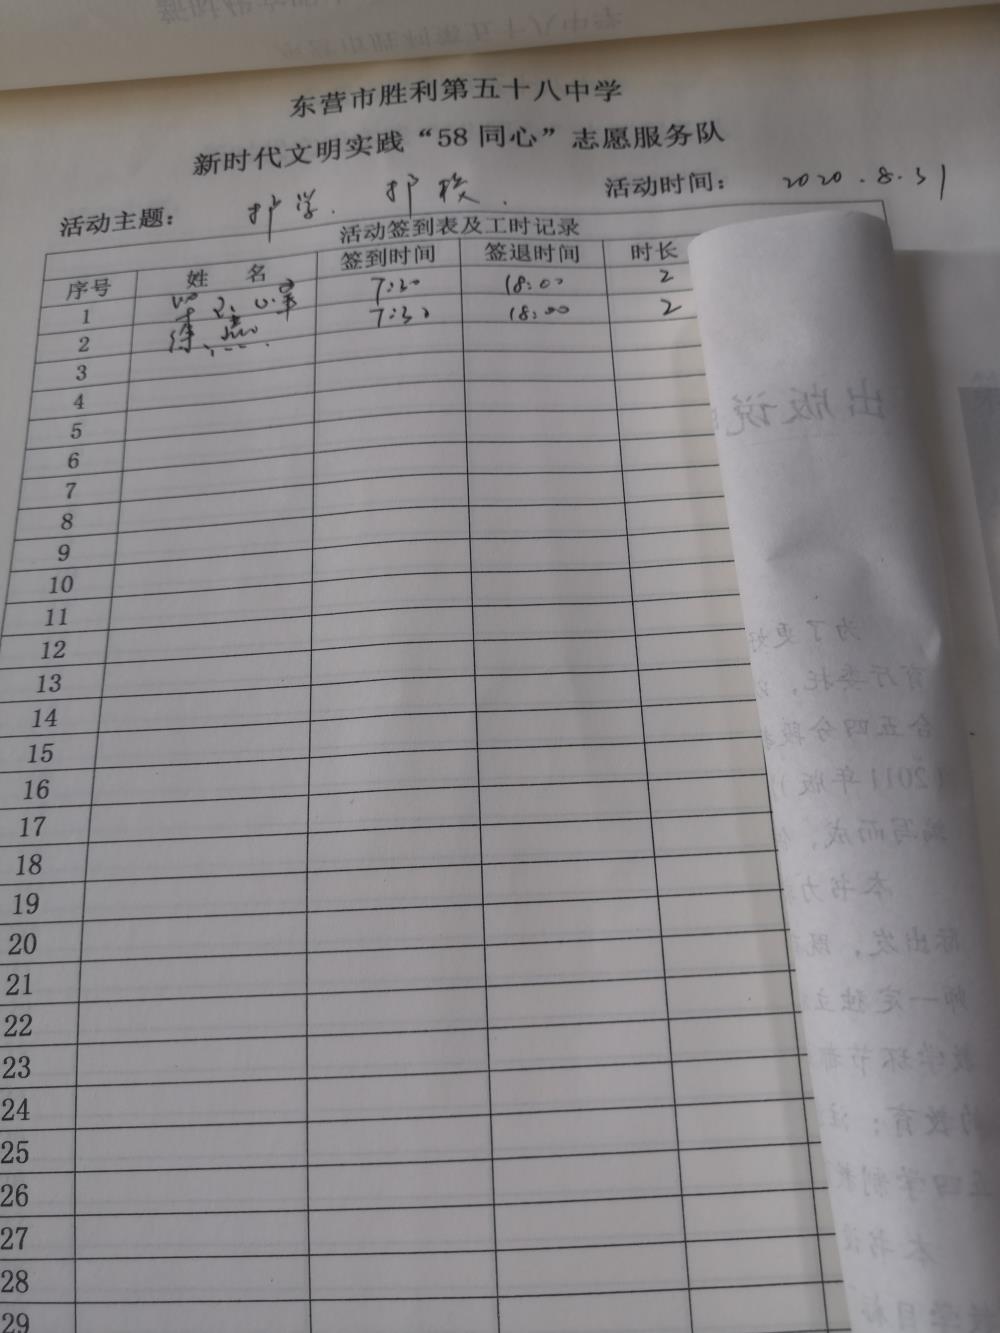 东营市胜利第五十八中学
新时代文明实践“58 同心”志愿服务队
活动主题： 护学. 护校. 活动时间： 2020.8.31
活动签到表及工时记录
序号 姓 名 签到时间 签退时间 时长
1 7:30 18:00 2
2 徐燕 7:30 18:00 2
3
4
5
6
7
8
9
10
11
12
13
14
15
16
17
18
19
20
21
22
23
24
25
26
27
28
29
出版说
为了更好
育厅委托，
合五四分段
（2011年版）
编写而成，
本书力
际出发，既
师一定独立
教学环节
的教育；注
五四学制
本书